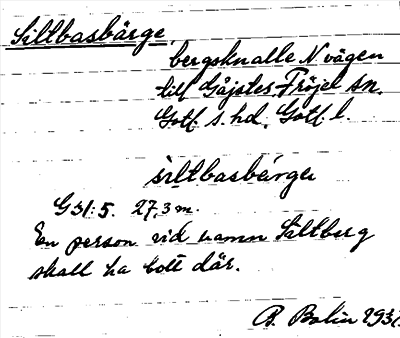 Siltbasbärge,
bergsknalle N vägen
till Gåjstes, Fröjel sn.
Gotl. s. hd. Gotl. l.
siltbasbärgə
G 31:5. 27,3 m.
En person vid namn Siltberg
skall ha bott där.
B. Bolin 1931